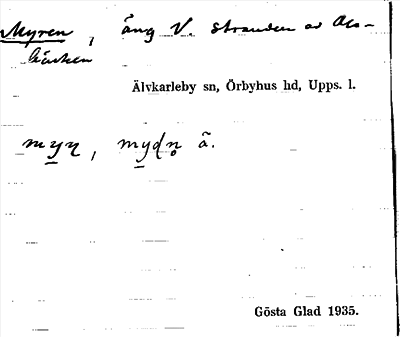 Myren, äng V. stranden av Als-
bäcken
Älvkarleby sn, Örbyhus hd, Upps. l.
myn, mydn ä.
Gösta Glad 1935.